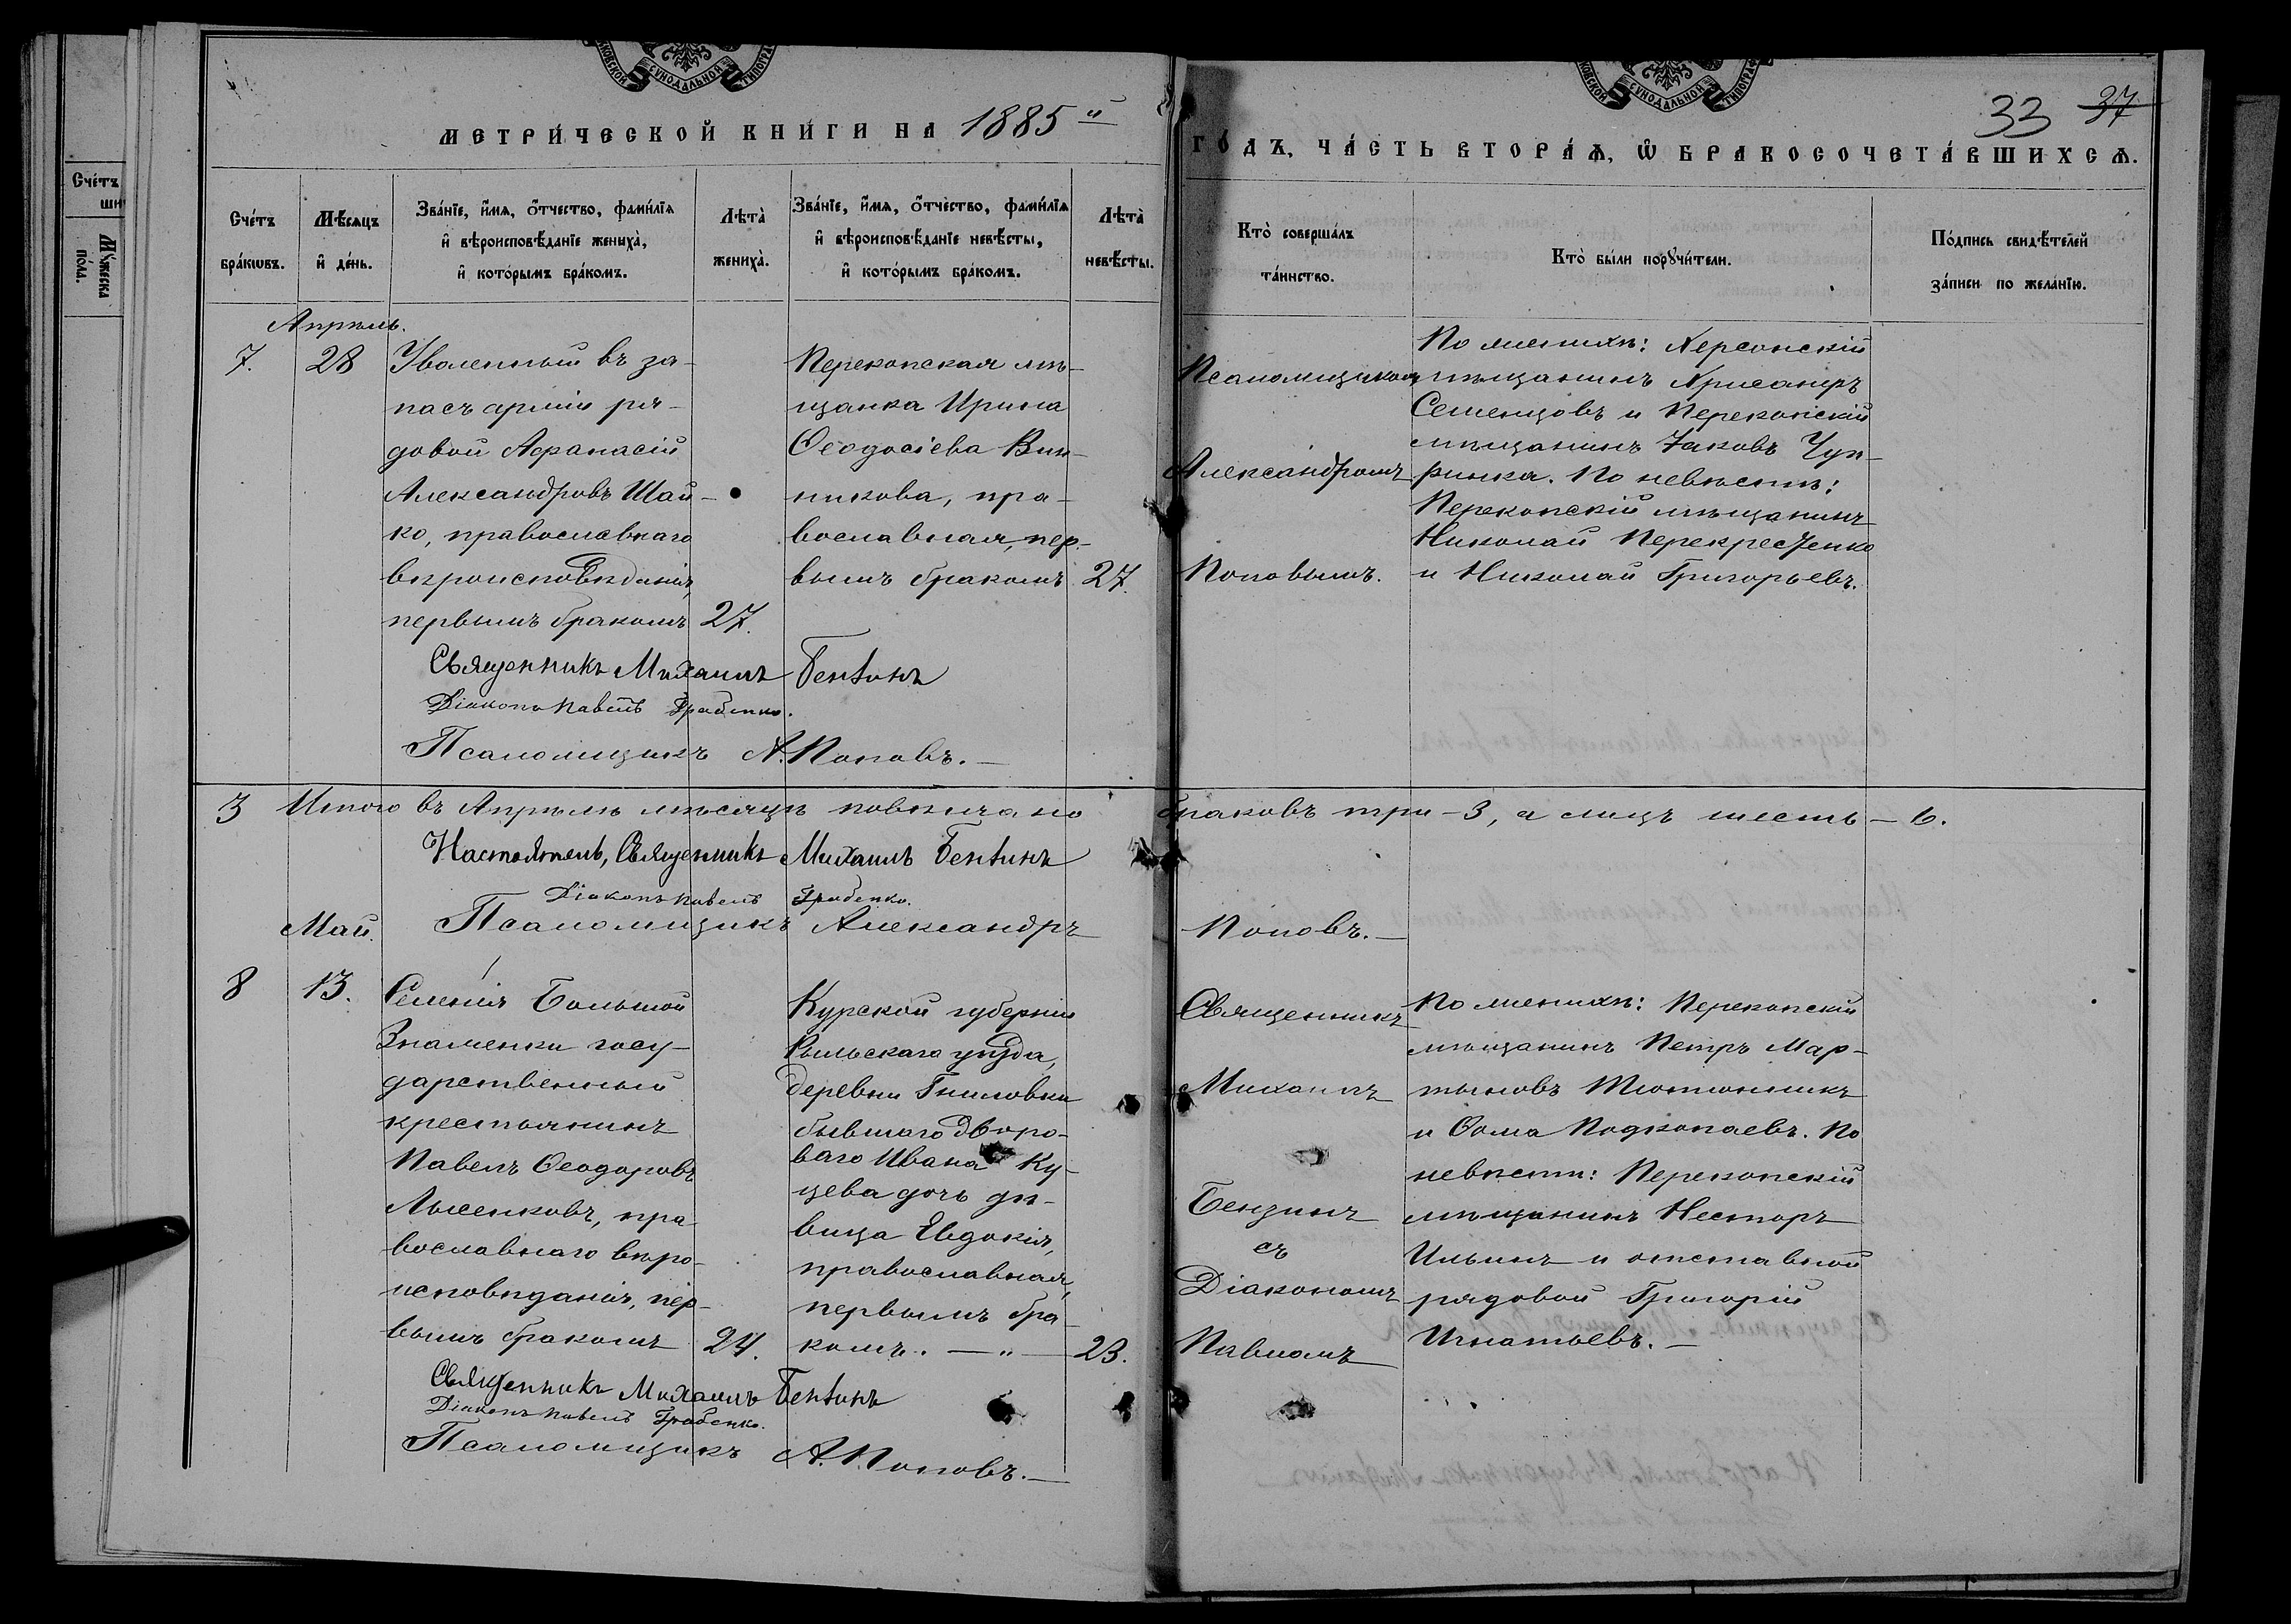 МОСКОВСКОЙ СѴНОДАЛЬНОЙ ТИПОГРАФ
МОСКОВСКОЙ СѴНОДАЛЬНОЙ ТИПОГРАФ
МЕТРИ́ЧЕСКОЙ КНИ́ГИ НА 1885й
ГО́ДЪ, ЧА́СТЬ ВТОРА́Ѧ, Ѡ҆ БРАКОСОЧЕТА́ВШИХСѦ.
33 37
Сче́тъ
Мꙋ́жеска
по́ла.
Сче́тъ
бра́кѡвъ.
Мѣ́сяцъ
и҆ де́нь.
Зва́нїе, и҆́мя, ѻ҆́тчество, фами́лїя
и҆ вѣроисповѣ́данїе жениха̀,
и҆ кото́рымъ бра́комъ.
Лѣта̀
жениха̀.
Зва́нїе, и҆́мя, ѻ҆́тчество, фами́лїя
и҆ вѣроисповѣ́данїе невѣ́сты,
и҆ кото́рымъ бра́комъ.
Лѣта̀
невѣ́сты.
Кто̀ соверша́лъ
та́инство.
Кто̀ бы́ли порꙋчи́тели.
По́дпись свидѣ́телей
за́писи по жела́нїю.
Апрѣль.
7.
28
Уволенный въ за-
пасъ арміи ря-
довой Афанасій
Александровъ Шай-
ко, православнаго
вѣроисповѣданія,
первымъ бракомъ
27.
Перекопская мѣ-
щанка Ирина
Ѳеодосіева Вин-
никова, пра-
вославная, пер-
вымъ бракомъ
27.
Псаломщикомъ
Александромъ
Поповымъ.
По женихѣ: Херсонскій
мѣщанинъ Хрисанфъ
Семенцовъ и Перекопскій
мѣщанинъ Іаковъ Чуп-
ринка. По невѣстѣ:
Перекопскій мѣщанинъ
Николай Перекрестенко
и Николай Григорьевъ.
Священникъ Михаилъ Бензинъ
Діаконъ Павелъ Грабенко.
Псаломщикъ А. Поповъ.
3 Итого въ Апрѣлѣ мѣсяцѣ повѣнчано браковъ три - 3, а лицъ шесть - 6.
Настоятель, Священникъ Михаилъ Бензинъ
Діаконъ Павелъ Грабенко.
Псаломщикъ Александръ Поповъ.
Май.
8
13.
Селенія Большой
Знаменки госу-
дарственный
крестьянинъ
Павелъ Ѳеодоровъ
Лысенковъ, пра-
вославнаго вѣро-
исповѣданія, пер-
вымъ бракомъ
24.
Курской губерніи
Рыльскаго уѣзда,
деревни Гниловки
бывшаго дворо-
ваго Ивана Ку-
цева дочь дѣ-
вица Евдокія,
православная,
первымъ бра-
комъ. — " —
23.
Священникъ
Михаилъ
Бензинъ
съ
Діакономъ
Павломъ
По женихѣ: Перекопскій
мѣщанинъ Петръ Мар-
тыновъ Тютюнникъ
и Ѳома Подкопаевъ. По
невѣстѣ: Перекопскій
мѣщанинъ Несторъ
Ильинъ и отставной
рядовой Григорій
Игнатьевъ.
Священникъ Михаилъ Бензинъ
Діаконъ Павелъ Грабенко.
Псаломщикъ А. Поповъ.